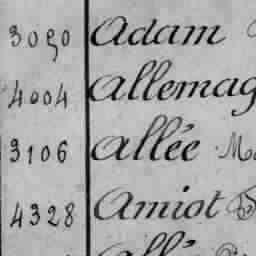 3050 Adam
4004 Allemag
3106 Allée Ma
4328 Amiot